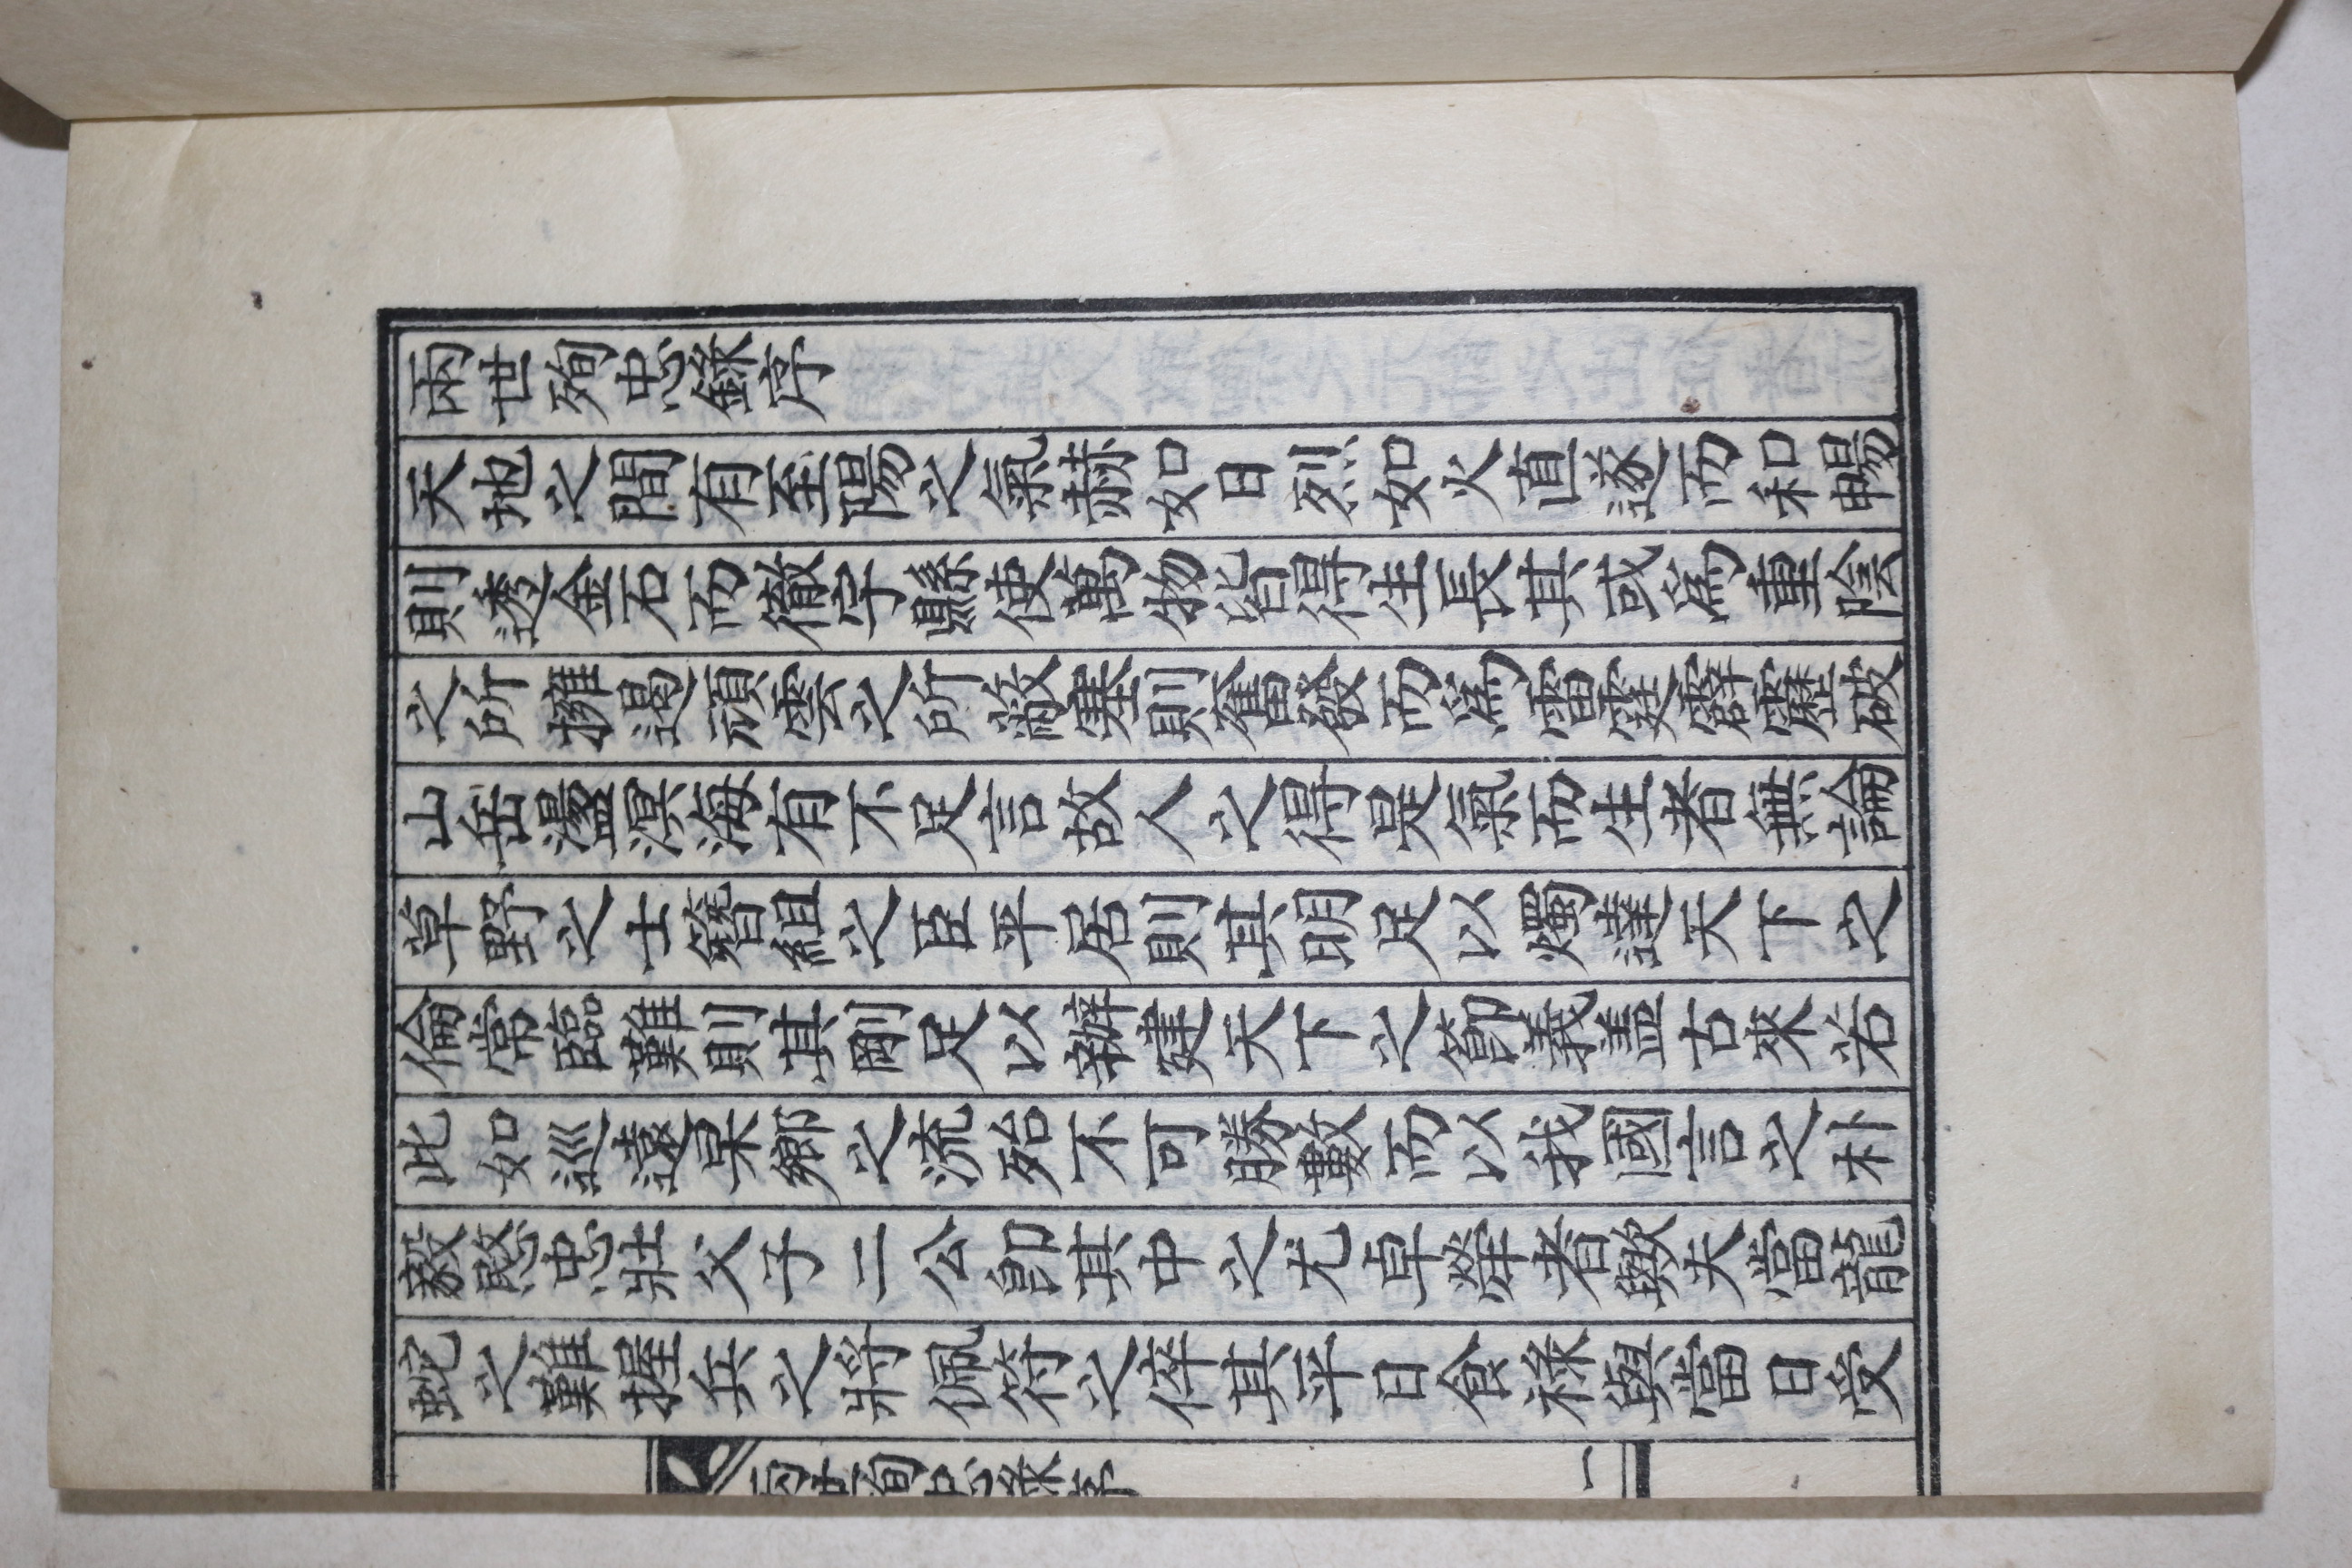 兩世殉忠錄序
天地之間有至陽之氣赫如日烈如火直遂而和暢
則透金石而徹宇縣使萬物皆得生長其或爲重陰
之所擁遏頑雲之所蔽塞則奮發而爲雷霆霹靂破
山岳盪溟海有不足言故人之得是氣而生者無論
草野之士簪組之臣平居則其明足以燭達天下之
倫常臨難則其剛足以辦建天下之節義盖古來若
此如巡遠杲鄉之流殆不可勝數而以我國言之朴
毅愍忠壯父子二公卽其中之尤卓犖者歟夫當龍
蛇之難握兵之將佩符之倅其平日食祿與當日受
兩世殉忠錄序
一